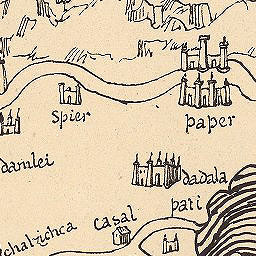 spier
paper
damlei
dadala
pati
casal
chalzichca